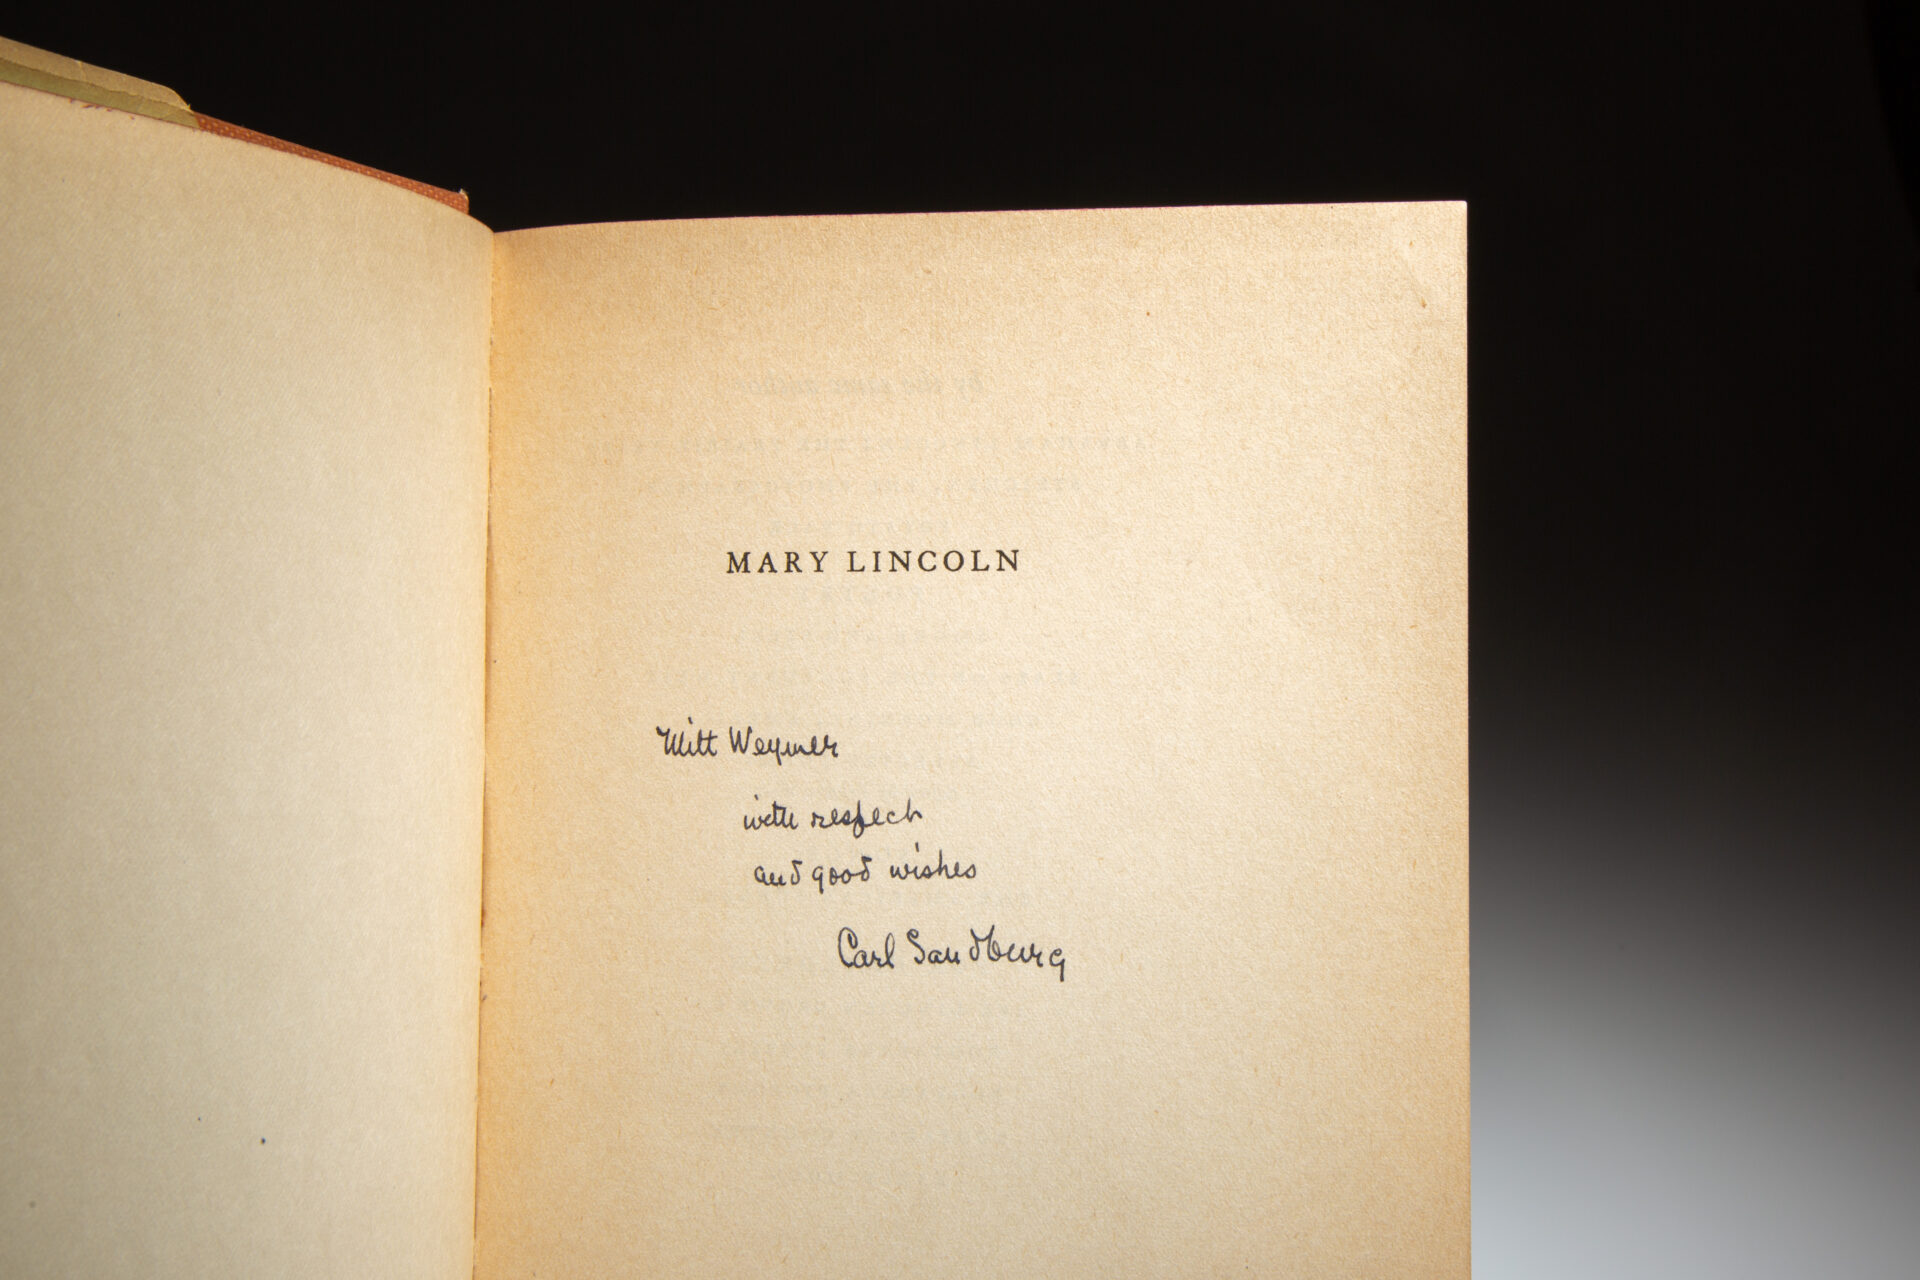 MARY LINCOLN
Milt Weymer
with respect
and good wishes
Carl Sandburg